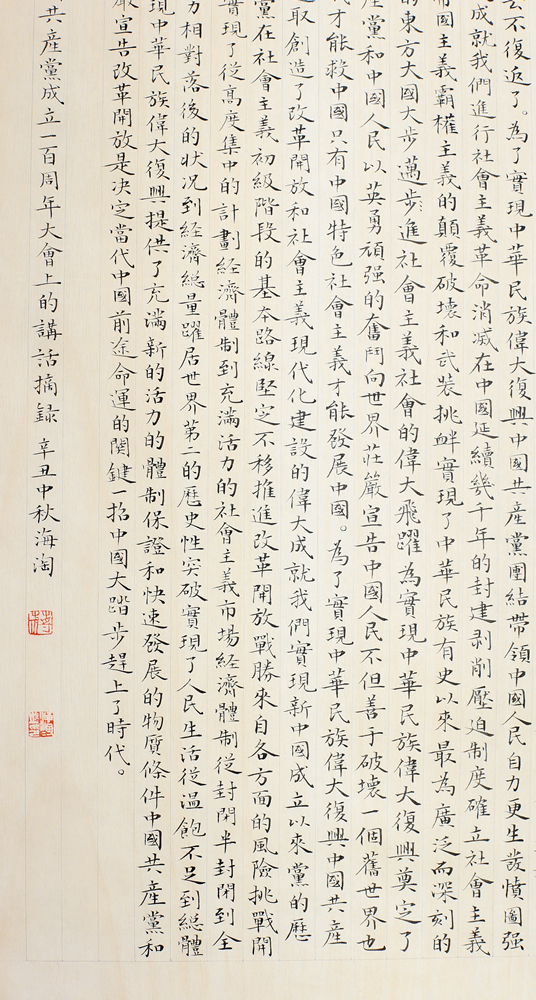 去不復返了。為了實現中華民族偉大復興中國共產黨團結帶領中國人民自力更生發憤圖強
成就我們進行社會主義革命消滅在中國延續幾千年的封建剥削壓迫制度確立社會主義
帝國主義霸權主義的顛覆破壞和武裝挑衅實現了中華民族有史以來最為廣泛而深刻的
的東方大國大步邁步進社會主義社會的偉大飛躍為實現中華民族偉大復興奠定了
產黨和中國人民以英勇頑强的奮鬥向世界莊嚴宣告中國人民不但善于破壞一個舊世界也
才能救中國只有中國特色社會主義才能發展中國。為了實現中華民族偉大復興中國共產
取創造了改革開放和社會主義現代化建設的偉大成就我們實現新中國成立以來黨的歷
黨在社會主義初級階段的基本路線堅定不移推進改革開放戰勝來自各方面的風險挑戰開
實現了從高度集中的計劃經濟體制到充滿活力的社會主義市場經濟體制從封閉半封閉到全
力相對落後的狀况到經濟總量躍居世界第二的歷史性突破實現了人民生活從温飽不足到總體
現中華民族偉大復興提供了充滿新的活力的體制保證和快速發展的物質條件中國共產黨和
嚴宣告改革開放是决定當代中國前途命運的関鍵一招中國大踏步趕上了時代。
共產黨成立一百周年大會上的講話摘録 辛丑中秋海淘